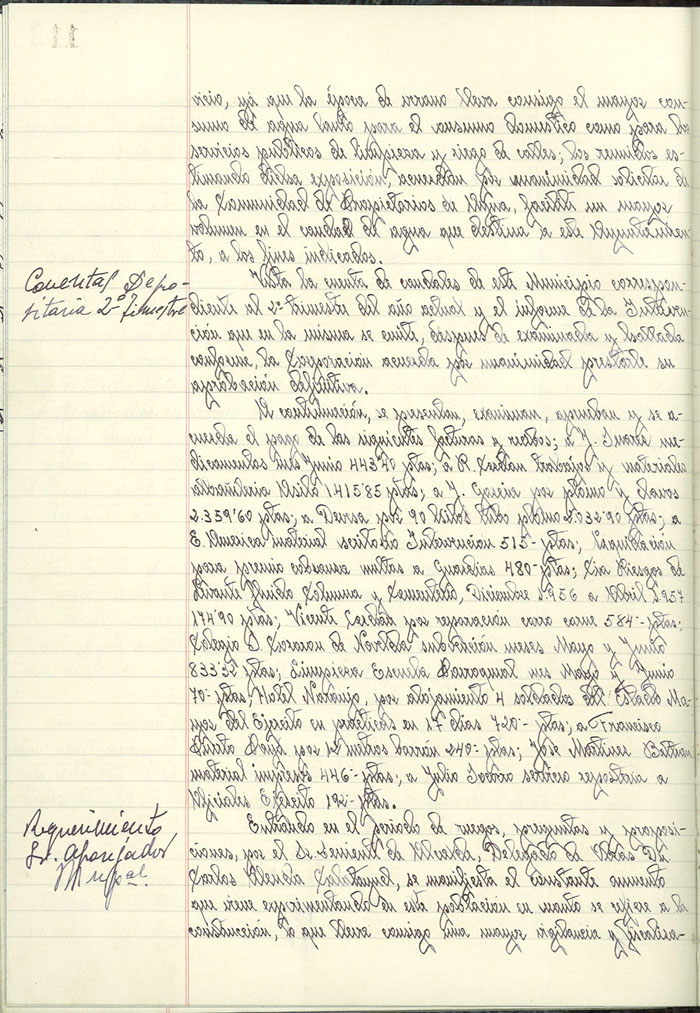 vicio, yá que la época de verano lleva consigo el mayor con-
sumo del agua tanto para el consumo doméstico como para los
servicios públicos de limpieza y riego de calles; los reunidos es-
timando dicha exposición, acuerdan por unanimidad solicitar de
la Comunidad de Propietarios de Agua, facilite un mayor
volumen en el caudal de agua que destina a este Ayuntamien-
to, a los fines indicados.
Cuenta Depo-
sitaria 2º Trimestre
Vista la cuenta de caudales de este Municipio correspon-
diente al 2º trimestre del año actual y el informe de la Interven-
ción que en la misma se emite, después de examinada y hallada
conforme, la Corporación acuerda por unanimidad prestarle su
aprobación definitiva.
A continuación, se presentan, examinan, aprueban y se a-
cuerda el pago de las siguientes facturas y recibos; a J. me-
dicamentos mes Junio 443'40 ptas; a R. trabajos y materiales
albañilería 1.415'85 ptas; a J. García por plomo y clavos
2.359'60 ptas; a por 90 kilos tubo plomo 2.032'90 ptas; a
E. America material escritorio Intervención 515- ptas; Liquidación
para premio cobranza multas a Guardias 480- ptas; Cia Riegos de
Levante fluido Columna y Cementerio, Diciembre 1.956 a Abril 1.957
174'90 ptas; Vicente por reparación carro carne 584- ptas;
Colegio de Novelda subvención meses Mayo y Junio
833'32 ptas; Limpieza Escuela Parroquial mes Mayo y Junio
70- ptas; Hotel Naranjo, por alojamiento 4 soldados del Estado Ma-
yor del Ejército en prácticas en 17 días 720- ptas; a Francisco
por 12 metros 240- ptas; José Martinez Beltran
material impreso 446- ptas; a Julio servicio a
Oficiales Ejército 192- ptas.
Requerimiento
Sr. Aparejador
Mupal.
Entrando en el período de ruegos, preguntas y proposi-
ciones, por el Sr. Teniente de Alcalde, Delegado de Obras Dn.
Carlos se manifiesta el constante aumento
que viene experimentando en esta población en cuanto se refiere a la
construcción, lo que lleva consigo una mayor vigilancia y fiscaliza-